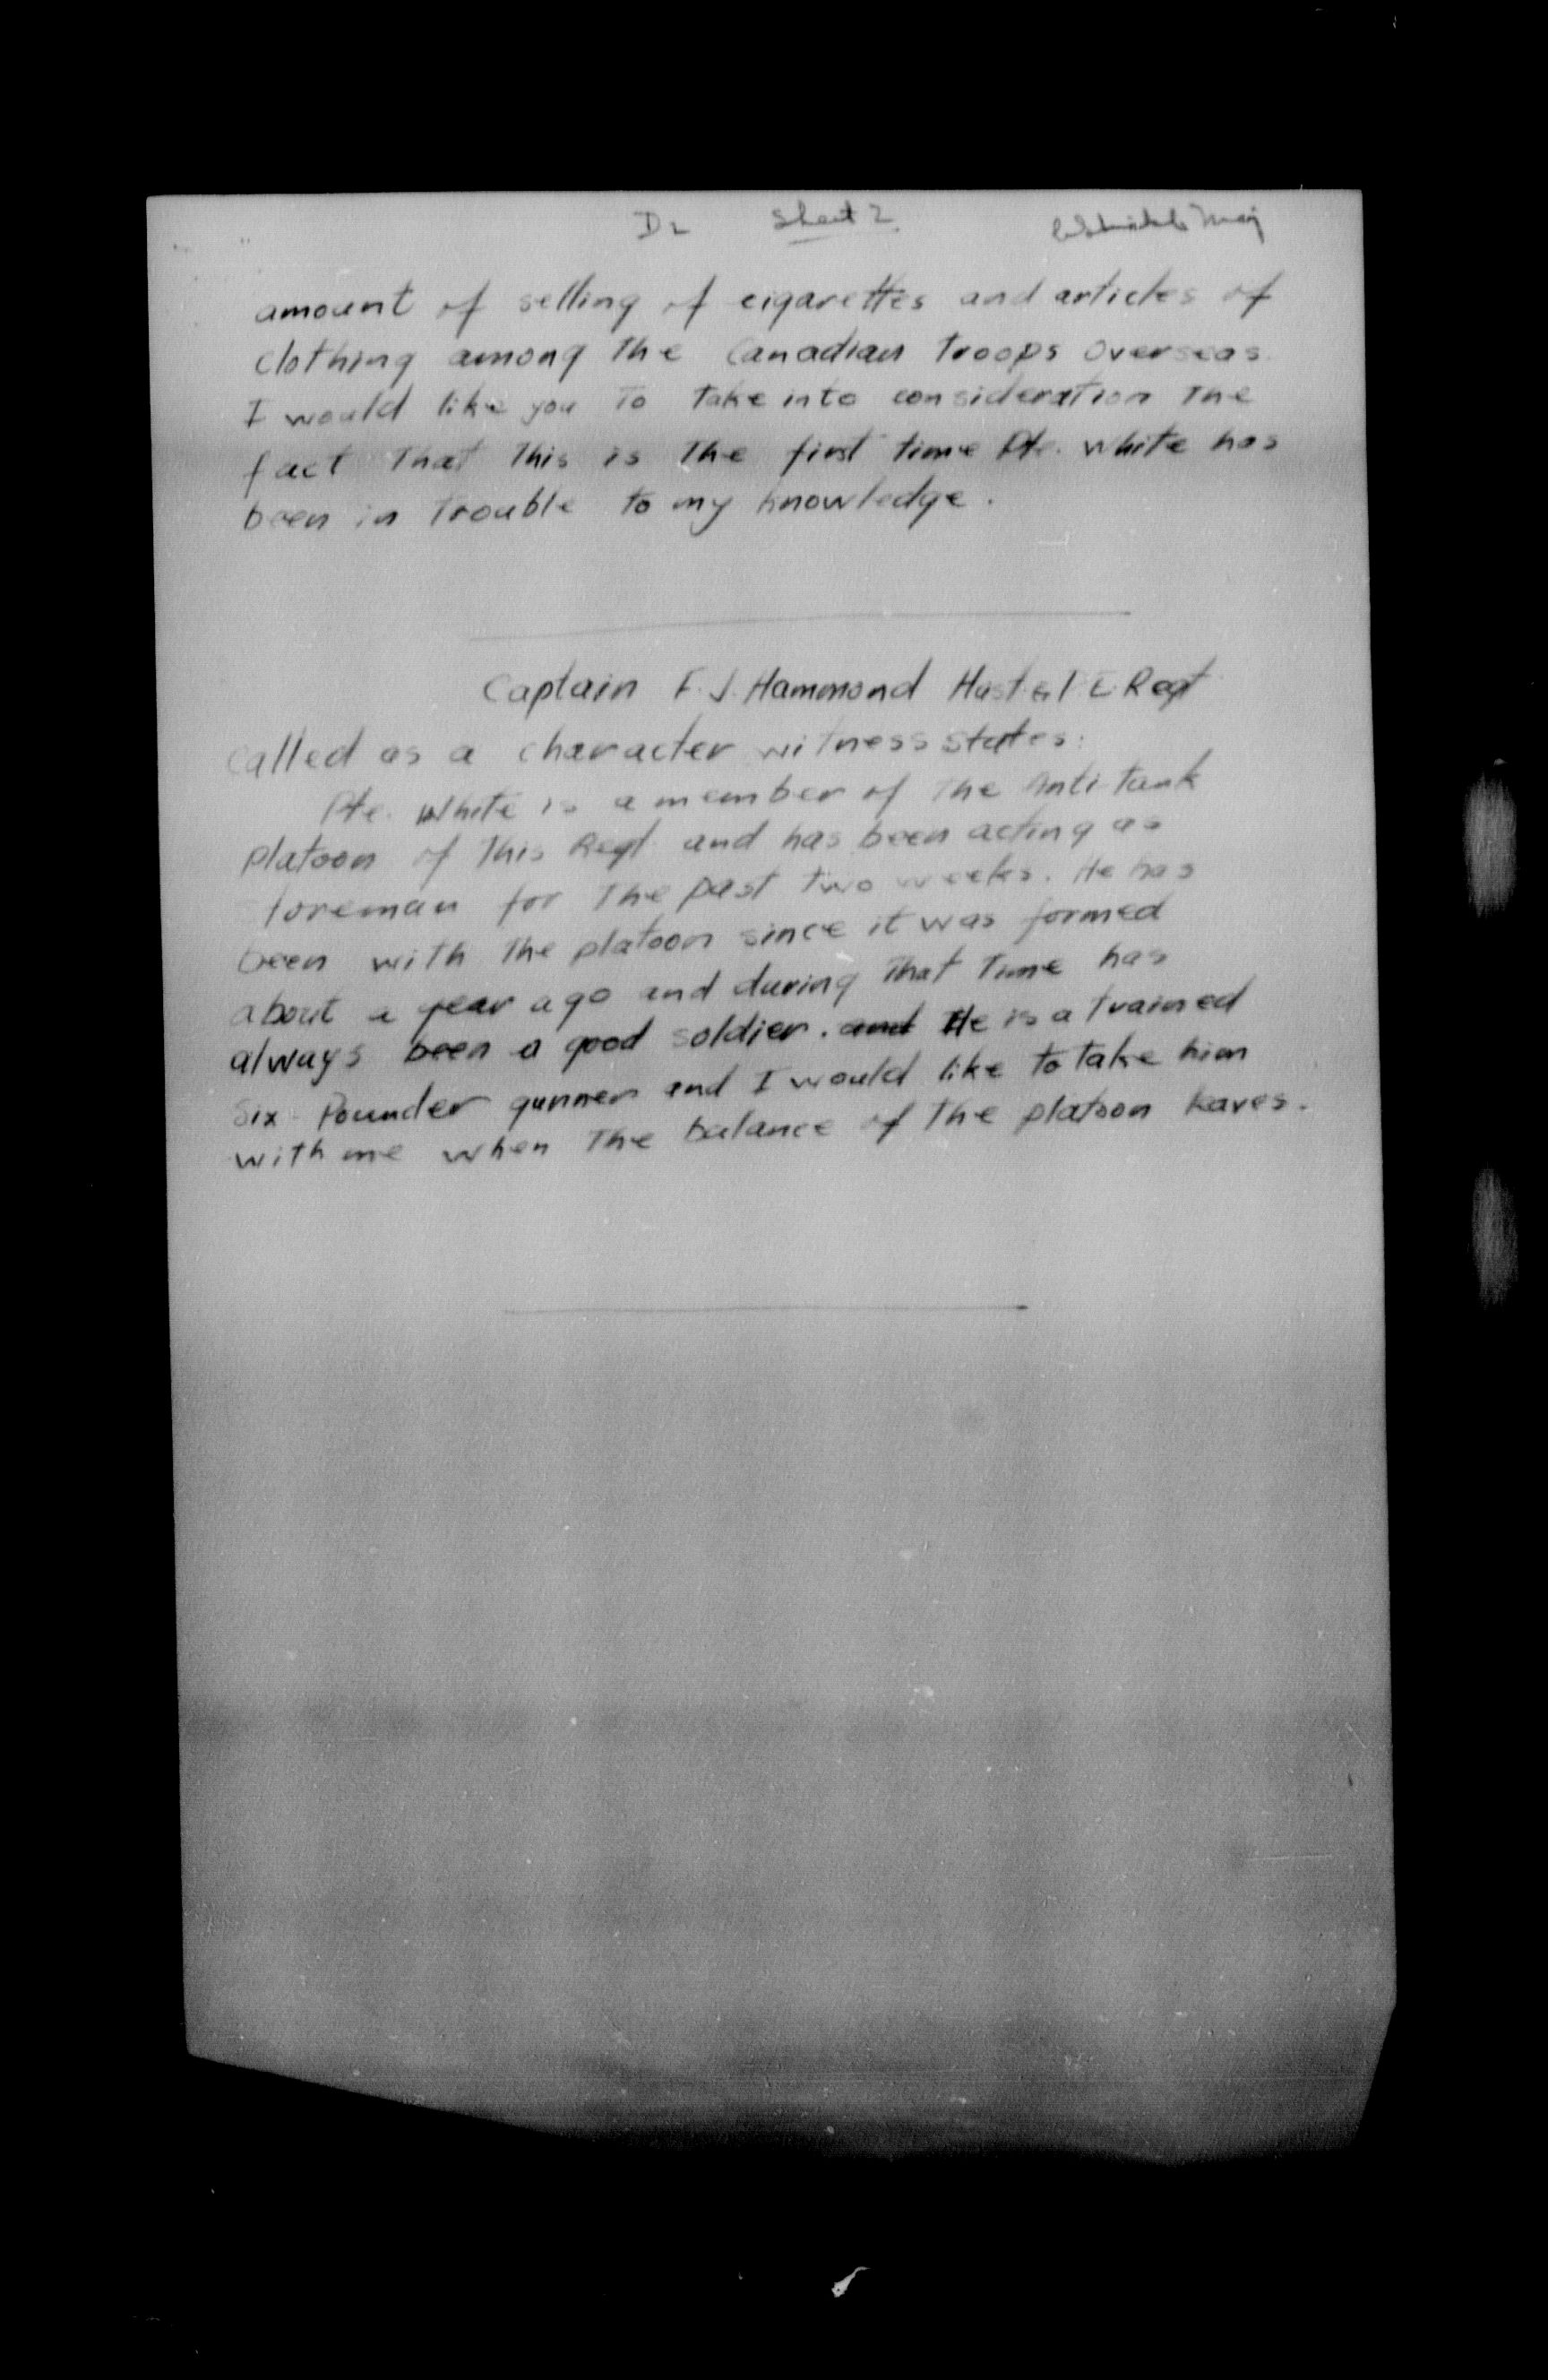 D2 Sheet 2 Maj
amount of selling of cigarettes and articles of
clothing among the Canadian troops overseas.
I would like you to take into consideration the
fact that this is the first time Pte. White has
been in trouble to my knowledge.
Captain F. J. Hammond Hast & P E Regt
called as a character witness states:
Pte. White is a member of the Anti-tank
platoon of this Regt and has been acting as
storeman for the past two weeks. He has
been with the platoon since it was formed
about a year ago and during that time has
always been a good soldier. and He is a trained
six pounder gunner and I would like to take him
with me when the balance of the platoon leaves.